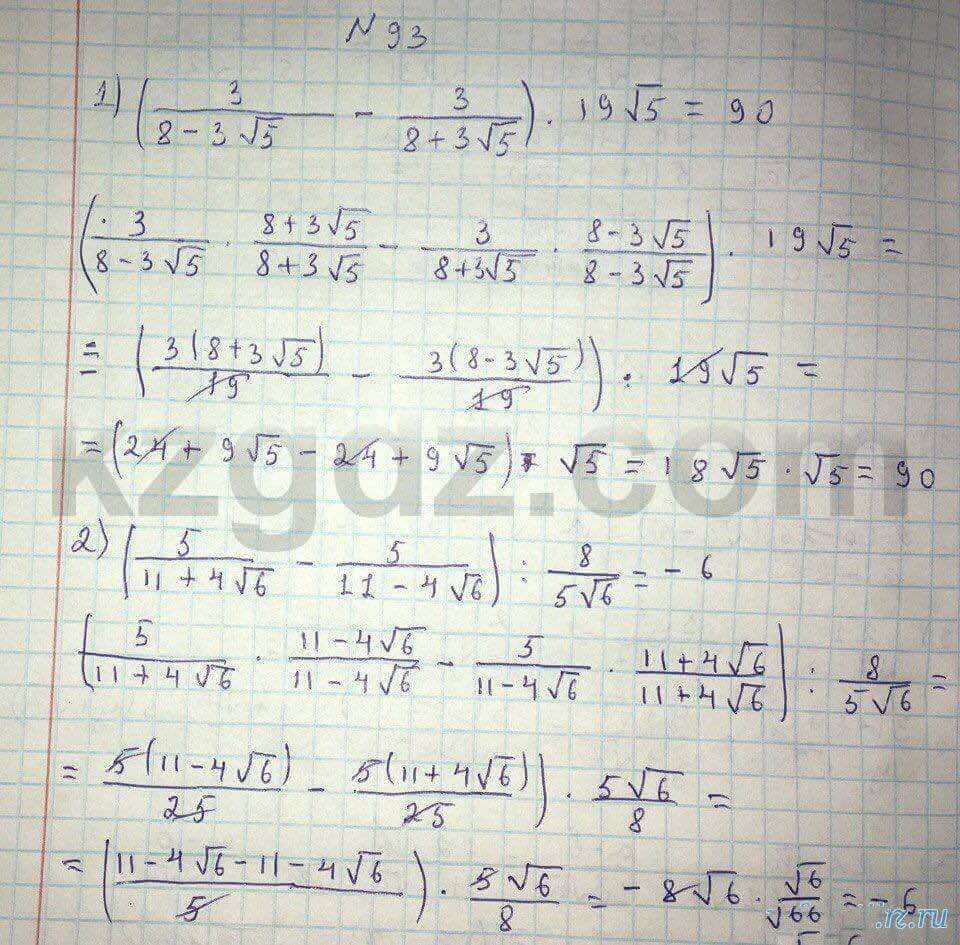 N 93
1) (3/(8 - 3√5) - 3/(8 + 3√5)) · 19√5 = 90
(3/(8 - 3√5) · (8 + 3√5)/(8 + 3√5) - 3/(8 + 3√5) · (8 - 3√5)/(8 - 3√5)) · 19√5 =
= (3(8 + 3√5)/19 - 3(8 - 3√5)/19) · 19√5 =
= (24 + 9√5 - 24 + 9√5) · √5 = 18√5 · √5 = 90
kzgdz.com
2) (5/(11 + 4√6) - 5/(11 - 4√6)) : 8/(5√6) = - 6
(5/(11 + 4√6) · (11 - 4√6)/(11 - 4√6) - 5/(11 - 4√6) · (11 + 4√6)/(11 + 4√6)) : 8/(5√6) =
= 5(11 - 4√6)/25 - 5(11 + 4√6)/25) · 5√6/8 =
= ((11 - 4√6 - 11 - 4√6)/5) · 5√6/8 = - 8√6 · √6/ = - 6